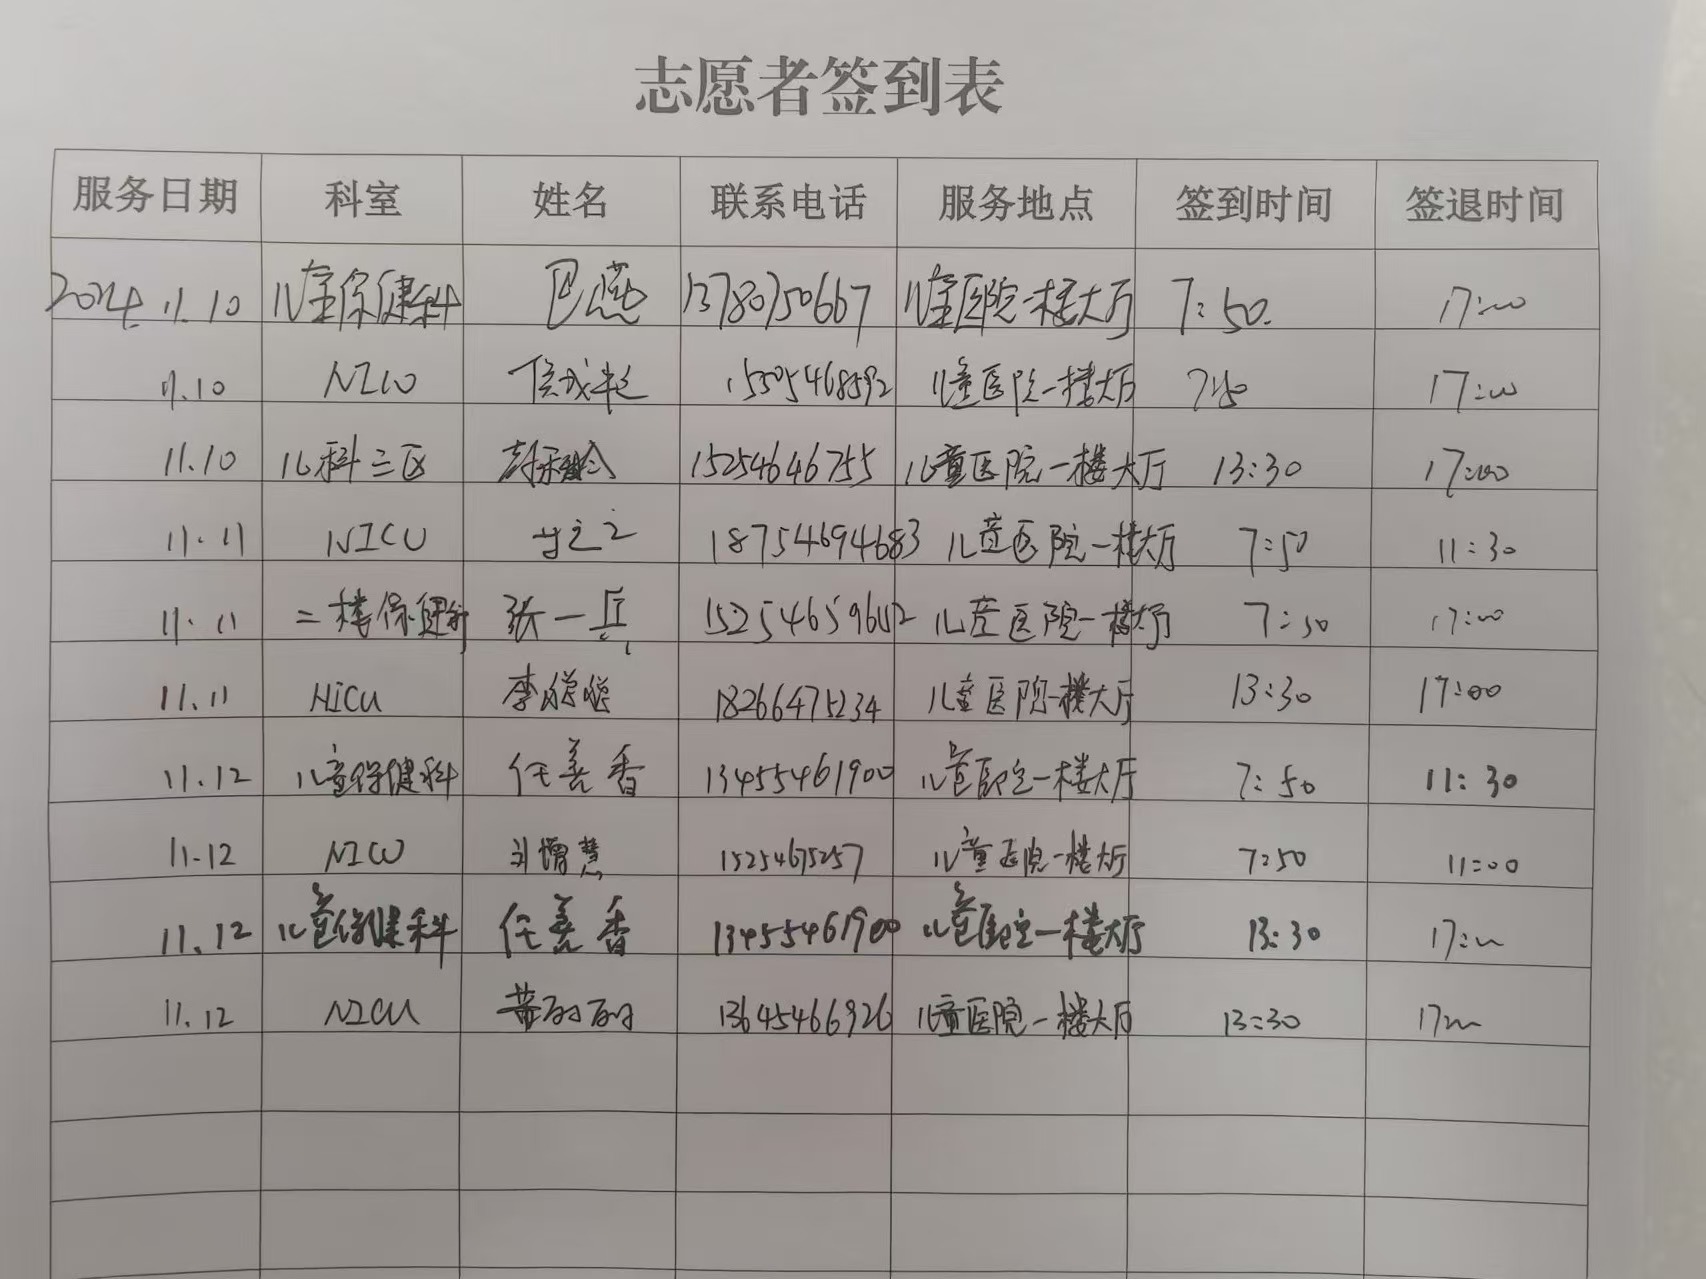 志愿者签到表
服务日期 科室 姓名 联系电话 服务地点 签到时间 签退时间
2024.11.10 儿童保健科 巴燕 13780750667 儿童医院一楼大厅 7:50. 17:00
11.10 NICU 15505468592 儿童医院一楼大厅 7:50 17:00
11.10 儿科三区 15254646755 儿童医院一楼大厅 13:30 17:00
11.11 NICU 18754694683 儿童医院一楼大厅 7:50 11:30
11.11 二楼保健科 张一兵 15254659652 儿童医院一楼大厅 7:50 17:00
11.11 NICU 李聪聪 18266475234 儿童医院一楼大厅 13:30 17:00
11.12 儿童保健科 任善香 13455461900 儿童医院一楼大厅 7:50 11:30
11.12 NICU 刘增慧 15254675257 儿童医院一楼大厅 7:50 11:00
11.12 儿童保健科 任善香 13455461900 儿童医院一楼大厅 13:30 17:00
11.12 NICU 黄丽丽 13645466926 儿童医院一楼大厅 13:30 17:00